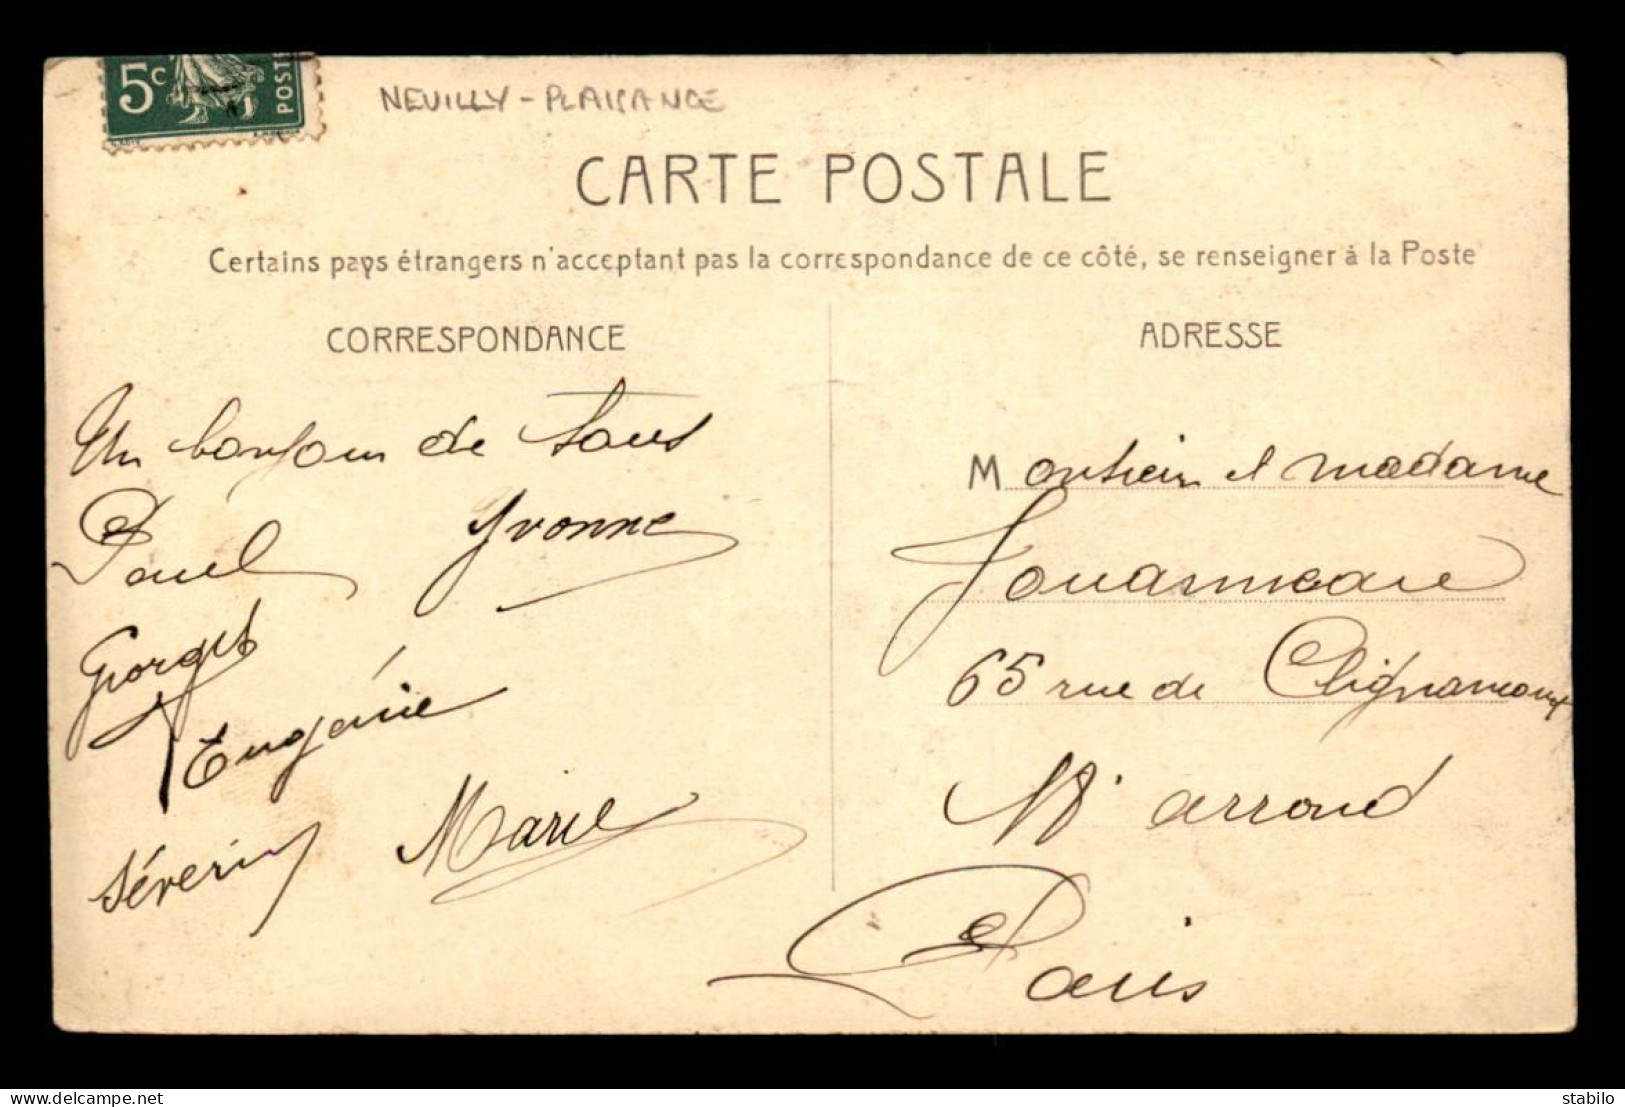 5c
POST
NEUILLY - PLAISANCE
CARTE POSTALE
Certains pays étrangers n'acceptant pas la correspondance de ce côté, se renseigner à la Poste
CORRESPONDANCE
Un bonjour de tous
Paul Yvonne
Georges
Eugénie
Séverin Marie
ADRESSE
Monsieur et madame
65 rue de Clignancourt
arrond
Paris
delcampe.net
stabilo